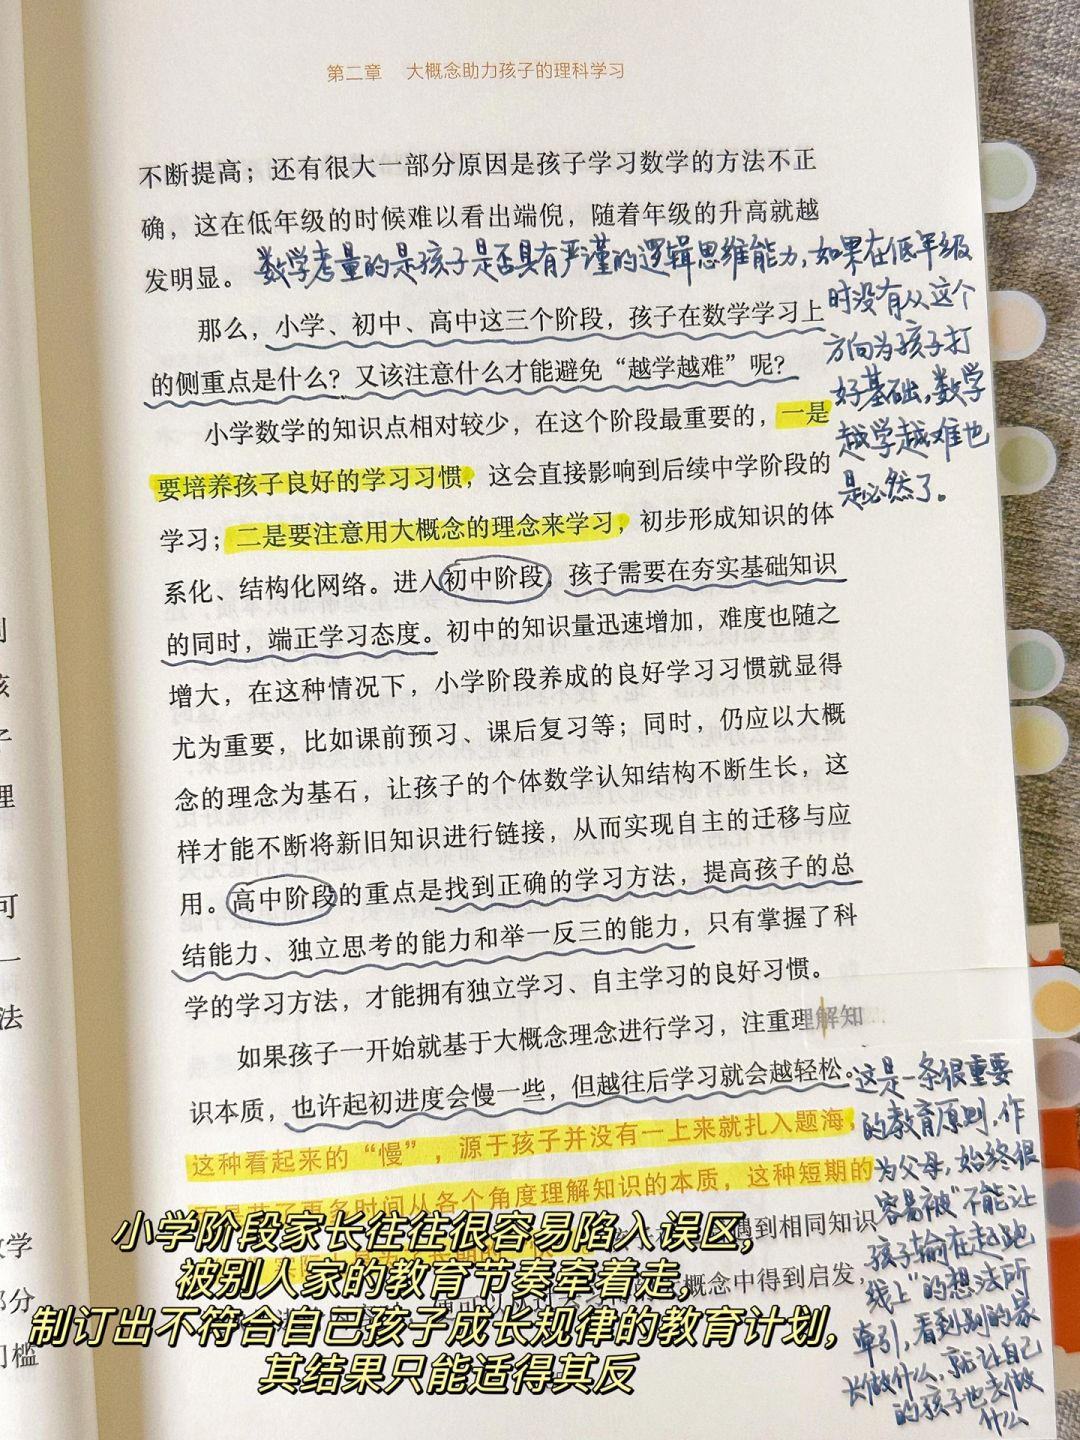 第二章 大概念助力孩子的理科学习
不断提高；还有很大一部分原因是孩子学习数学的方法不正
确，这在低年级的时候难以看出端倪，随着年级的升高就越
发明显。
数学考量的是孩子是否具有严谨的逻辑思维能力，如果在低年级
时没有从这个
方向为孩子打
好基础，数学
越学越难也
是必然了。
那么，小学、初中、高中这三个阶段，孩子在数学学习上
的侧重点是什么？又该注意什么才能避免“越学越难”呢？
小学数学的知识点相对较少，在这个阶段最重要的，一是
要培养孩子良好的学习习惯，这会直接影响到后续中学阶段的
学习；二是要注意用大概念的理念来学习，初步形成知识的体
系化、结构化网络。进入初中阶段，孩子需要在夯实基础知识
的同时，端正学习态度。初中的知识量迅速增加，难度也随之
增大，在这种情况下，小学阶段养成的良好学习习惯就显得
尤为重要，比如课前预习、课后复习等；同时，仍应以大概
念的理念为基石，让孩子的个体数学认知结构不断生长，这
样才能不断将新旧知识进行链接，从而实现自主的迁移与应
用。高中阶段的重点是找到正确的学习方法，提高孩子的总
结能力、独立思考的能力和举一反三的能力，只有掌握了科
学的学习方法，才能拥有独立学习、自主学习的良好习惯。
如果孩子一开始就基于大概念理念进行学习，注重理解知
识本质，也许起初进度会慢一些，但越往后学习就会越轻松。
这种看起来的“慢”，源于孩子并没有一上来就扎入题海，
更多时间从各个角度理解知识的本质，这种短期的
遇到相同知识
概念中得到启发，
这是一条很重要
的教育原则，作
为父母，始终很
容易被“不能让
孩子输在起跑
线上”的想法所
牵引，看到别的家
长做什么，就让自己
的孩子也去做
什么
小学阶段家长往往很容易陷入误区，
被别人家的教育节奏牵着走，
制订出不符合自己孩子成长规律的教育计划，
其结果只能适得其反
理
可
一
法
学
部分
门槛